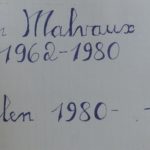 Malvaux
1962-1980
len 1980-